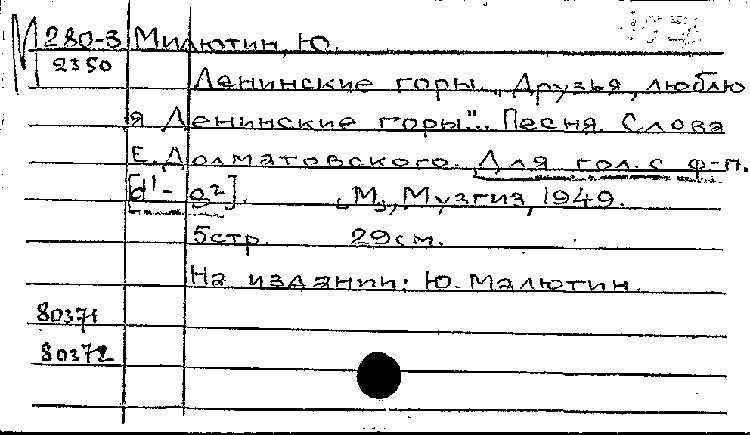 М 280-3 Милютин, Ю.
2350
Ленинские горы. „Друзья, люблю
я Ленинские горы"... Песня. Слова
Е. Долматовского. Для гол. с ф-п.
[d¹- g²]. М., Музгиз, 1949.
5стр. 29см.
На издании: Ю. Малютин.
80371
80372